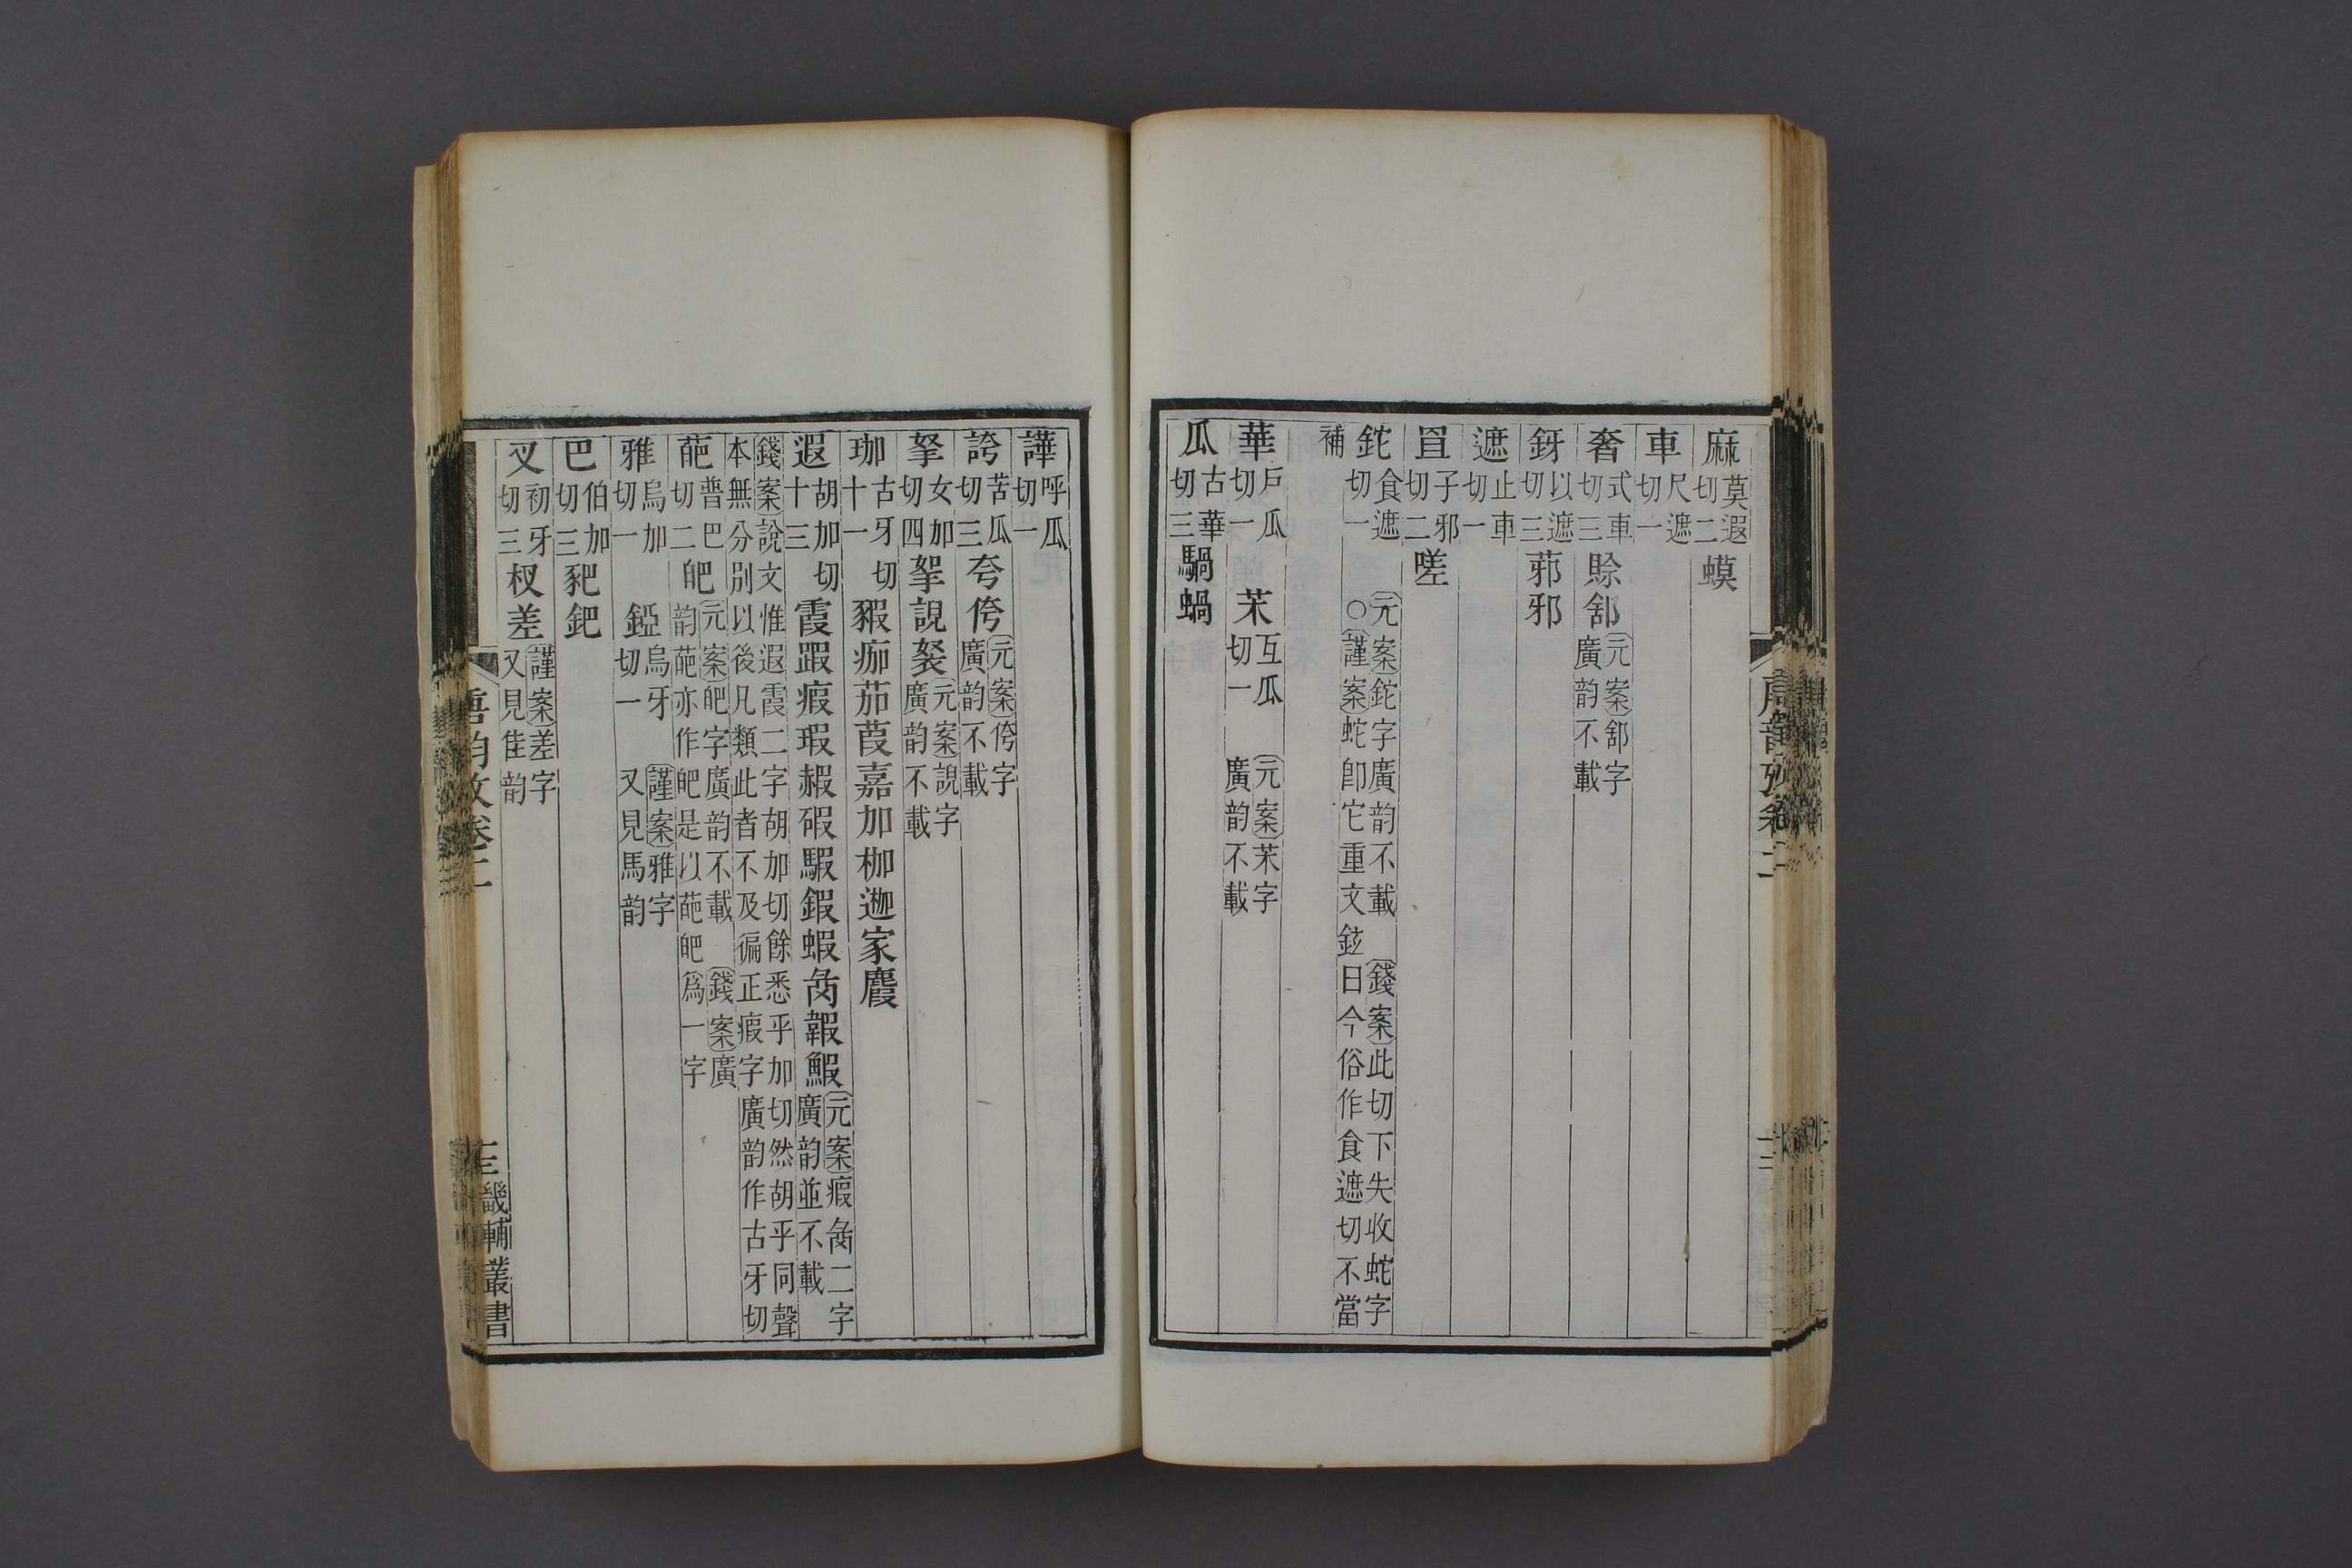 麻莫遐切二蟆
車尺遮切一
奢式車切三賒䣄元案䣄字廣韵不載
釾以遮切三䓉邪
遮止車切一
罝子邪切二嗟
鉈食遮切一元案鉈字廣韵不載錢案此切下失收蛇字○謹案蛇卽它重文鉉曰今俗作食遮切不當
補
華戶瓜切一𦬸互瓜切一元案𦬸字廣韵不載
瓜古華切三騧蝸
譁呼瓜切一
誇苦瓜切三夸侉元案侉字廣韵不載
拏女加切四挐䛏袈廣韵不載
珈古牙切十一豭痂茄葭嘉加枷迦家麚
遐胡加切十三霞踀瘕瑕赮碬騢鍜蝦韍鰕元案瘕二字廣韵並不載
錢案說文惟遐霞二字胡加切餘悉乎加切然胡乎同聲本無分別以後凡類此者不及徧正瘕字廣韵作古牙切
葩普巴切二皅元案皅字廣韵不載錢案廣韵葩亦作皅是以葩皅爲一字
雅烏加切一錏烏牙切一謹案雅字又見馬韵
巴伯加切三豝鈀
叉初牙切三杈差謹案差字又見佳韵
唐韵攷卷二
十三畿輔叢書